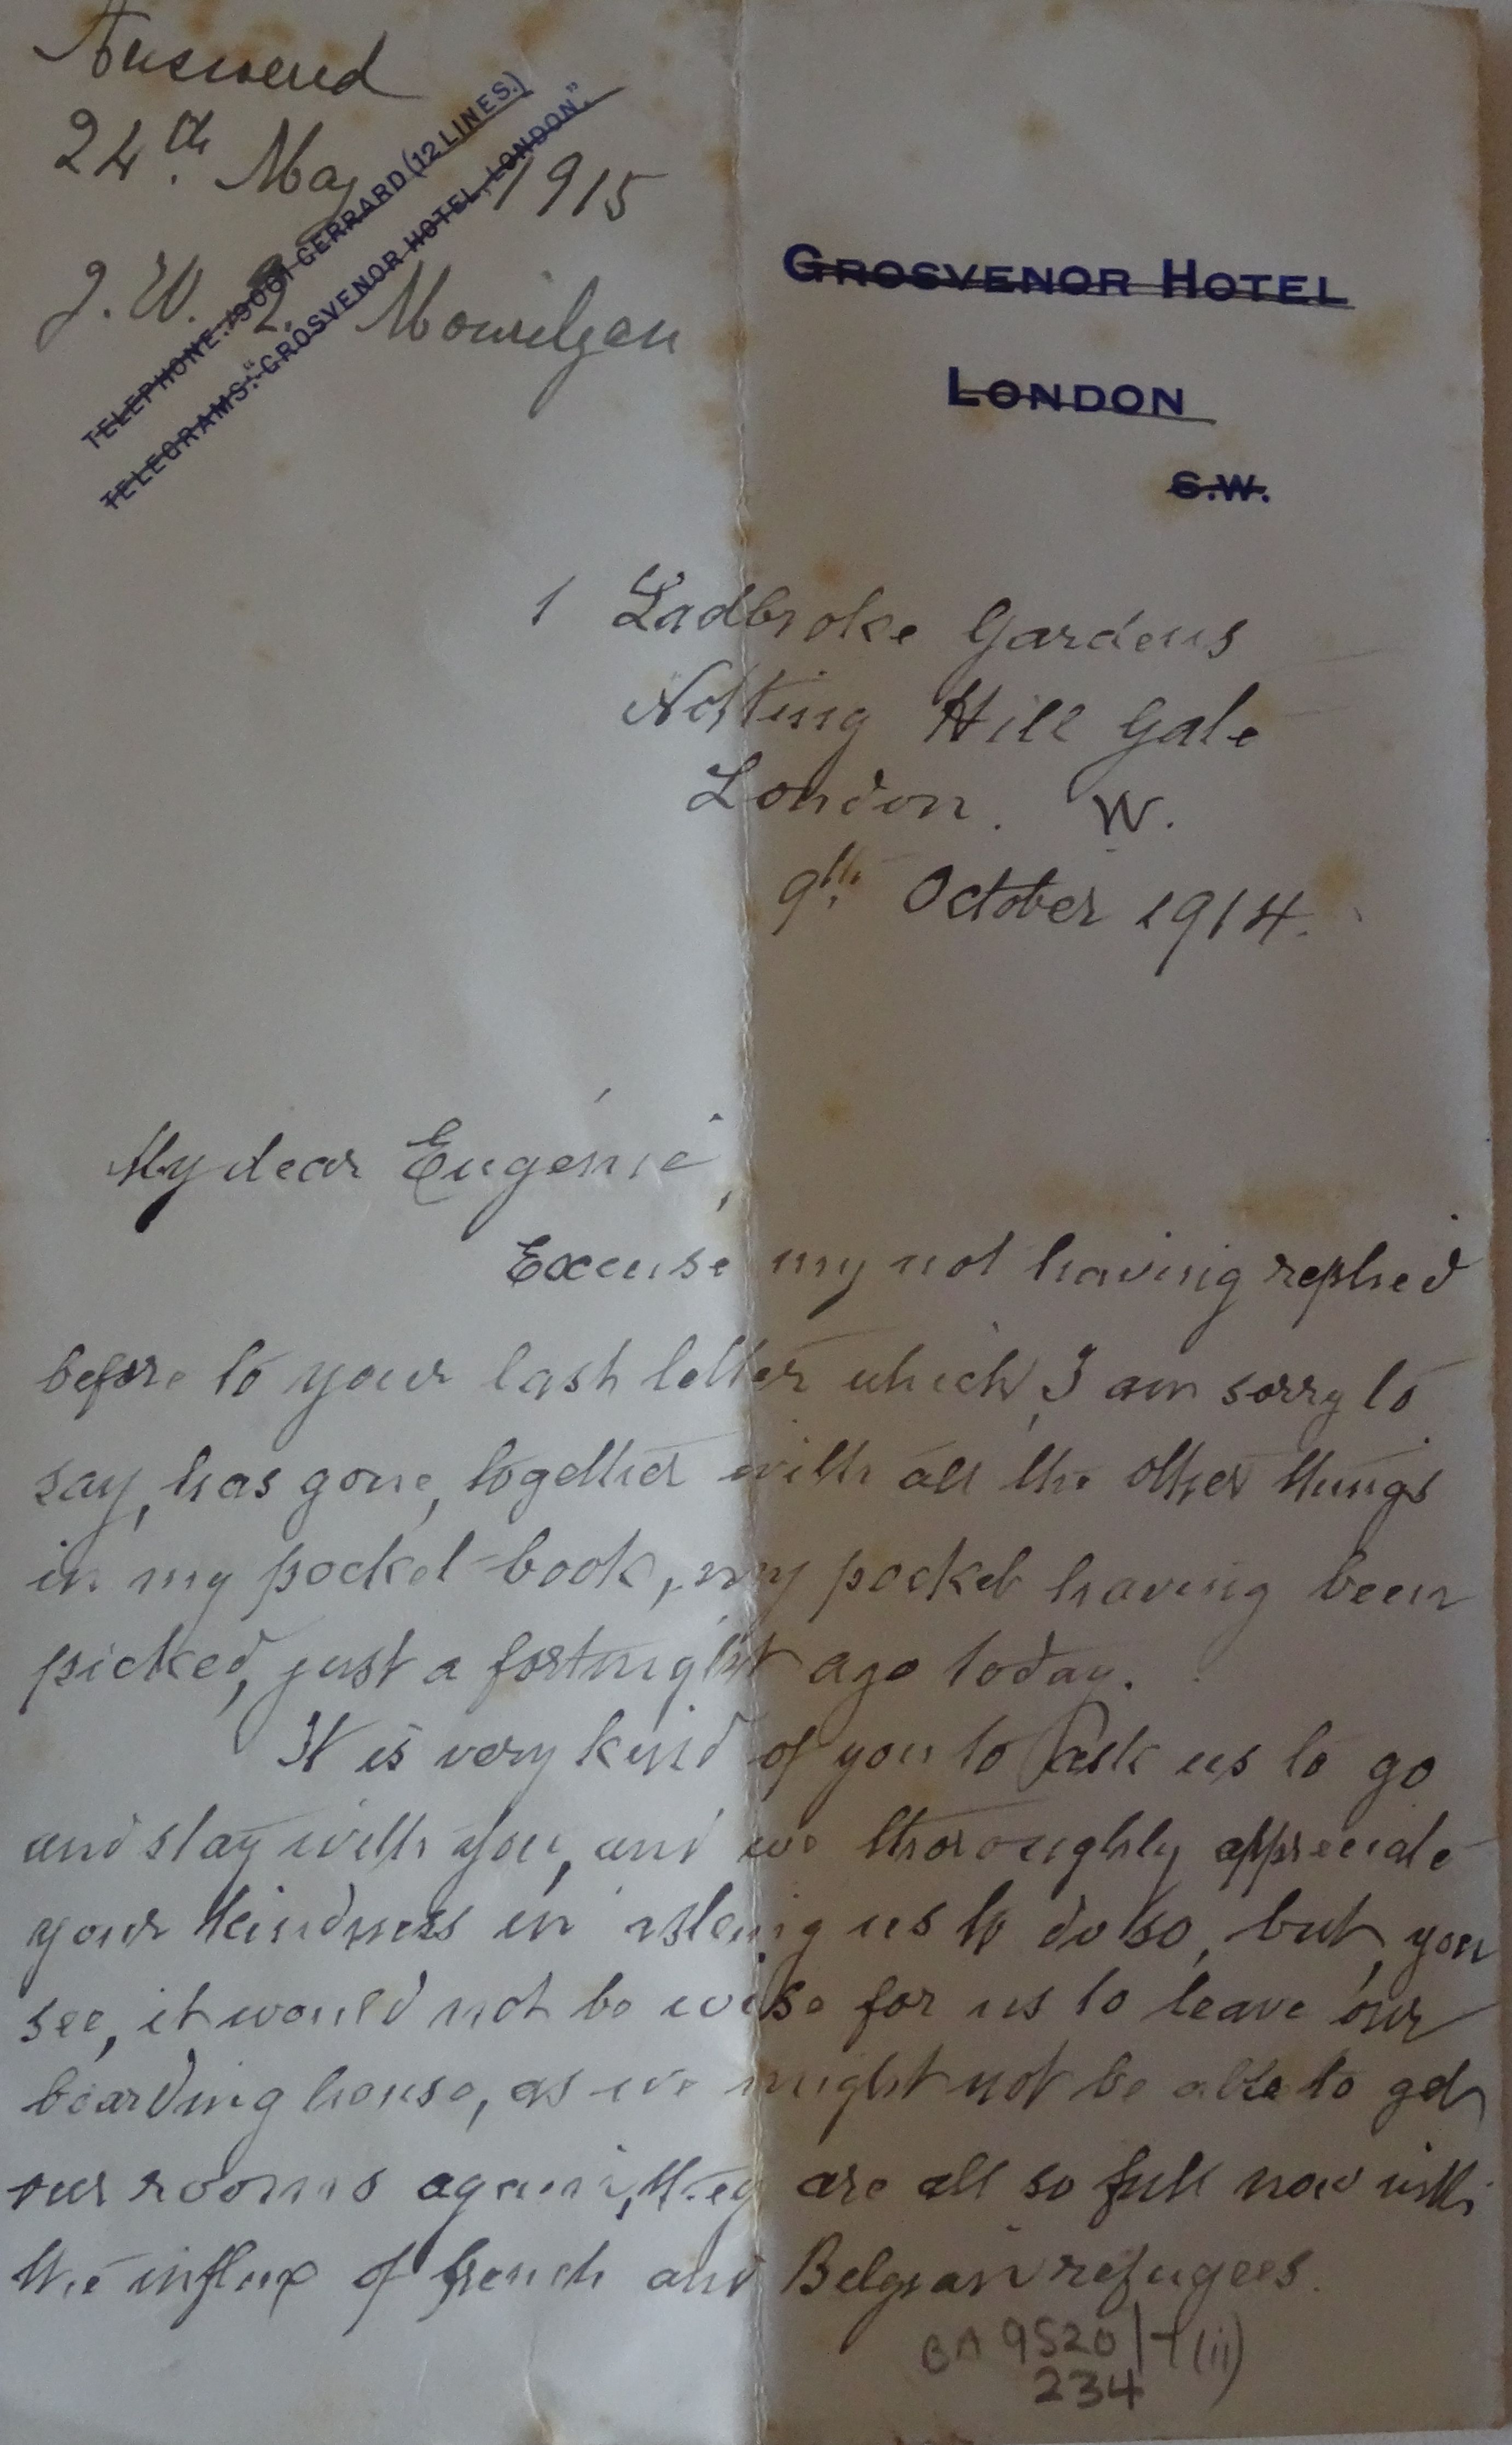 Answered
24th. May 1915
J. W.
TELEPHONE: 9001 GERRARD (12 LINES.)
TELEGRAMS: "GROSVENOR HOTEL, LONDON".
GROSVENOR HOTEL
LONDON
S.W.
1 Ladbroke Gardens
Notting Hill Gate
London. W.
9th. October 1914.
My dear Eugénie,
Excuse my not having replied
before to your last letter which, I am sorry to
say, has gone, together with all the other things
in my pocket-book, my pocket having been
picked, just a fortnight ago today.
It is very kind of you to ask us to go
and stay with you, and we thoroughly appreciate
your kindness in asking us to do so, but, you
see, it would not be wise for us to leave our
boarding house, as we might not be able to get
our rooms again, they are all so full now with
the influx of french and Belgian refugees.
BA 9520/ (ii)
234